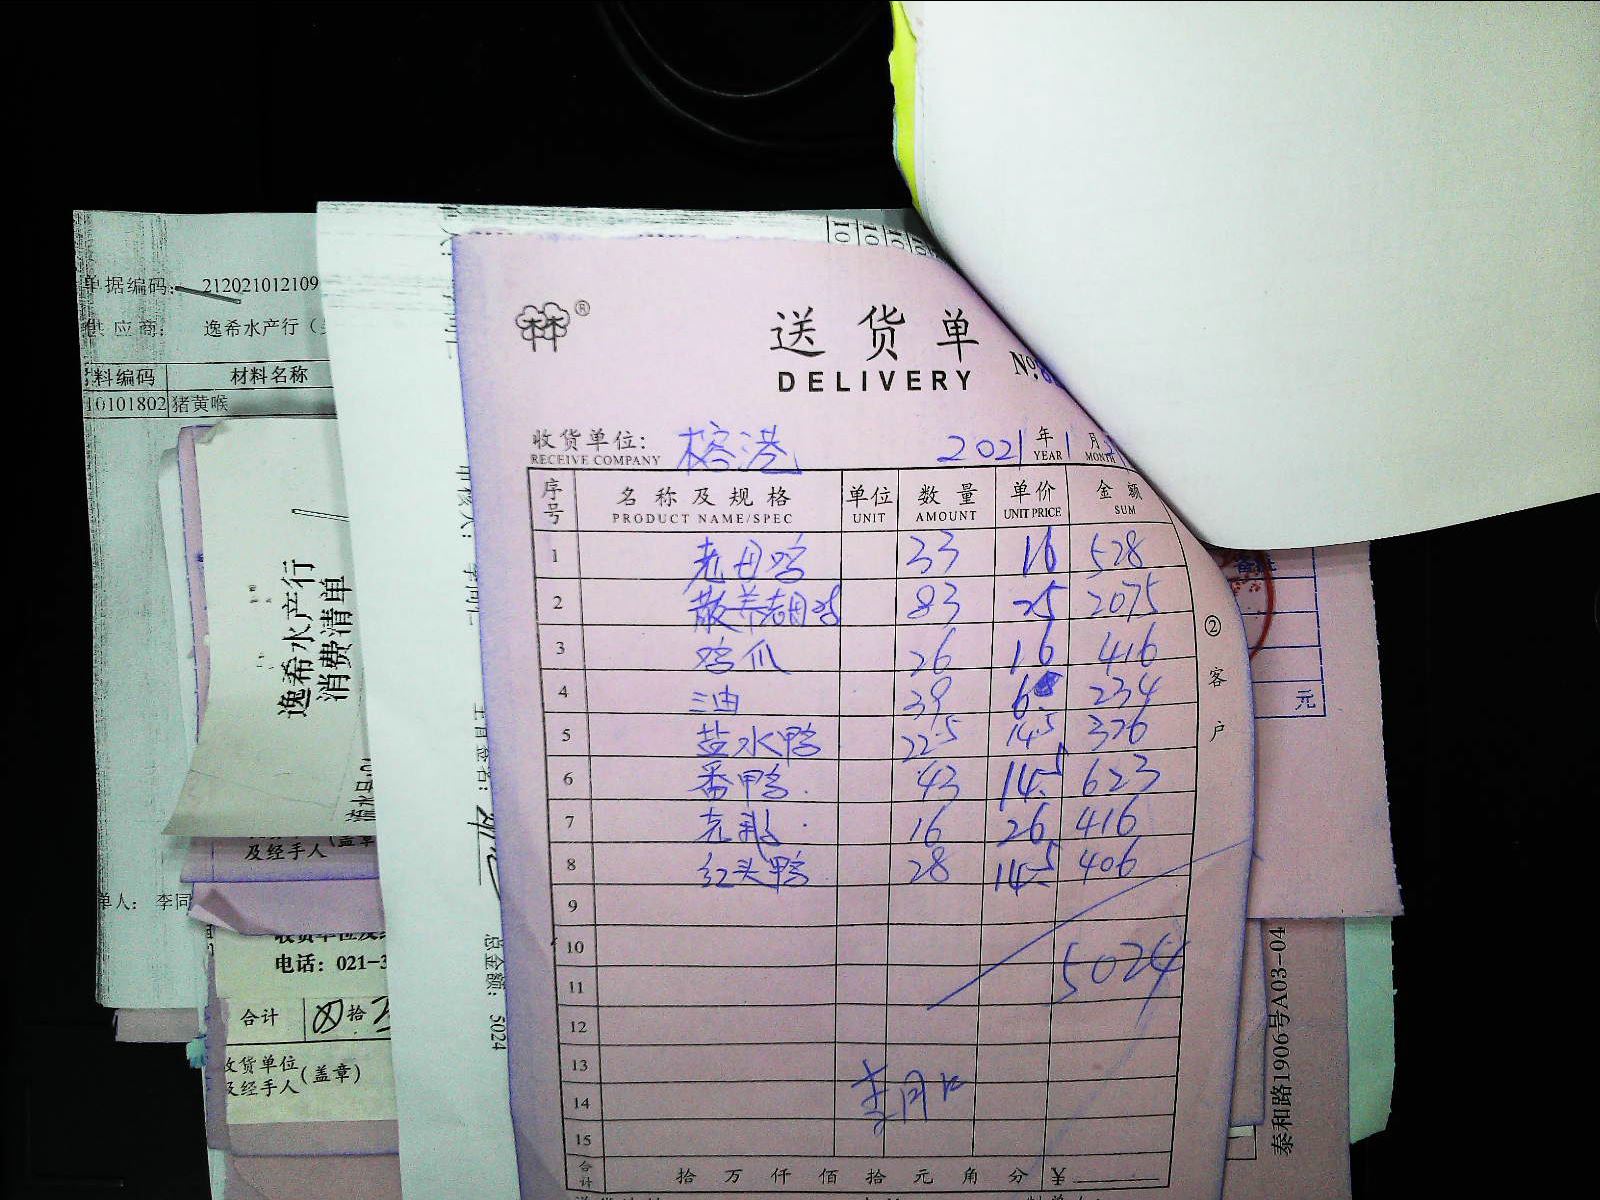 单据编码： 212021012109
供应商： 逸希水产行（
料编码 材料名称
10101802 猪黄喉
逸希水产行
消费清单
及经手人
单人： 李同
电话：021-3
合计 拾
收货单位
及经手人(盖章)
总金额： 5024
林®
送货单
DELIVERY
№:
收货单位： 榕港 2021年1月
RECEIVE COMPANY YEAR MONTH
序号 名称及规格 单位 数量 单价 金额
PRODUCT NAME/SPEC UNIT AMOUNT UNIT PRICE SUM
1 老母鸡 33 16 528
2 散养老母鸡 83 25 2075
3 鸡爪 26 16 416
4 39 6 234
5 盐水鸭 22.5 14.5 326
6 番鸭 43 14.5 623
7 16 26 416
8 红头鸭 28 14.5 406
9
10 5024
11
12
13
14
15
合计 拾万仟佰拾元角分 ¥
②客户
元
泰和路1906号A03-04